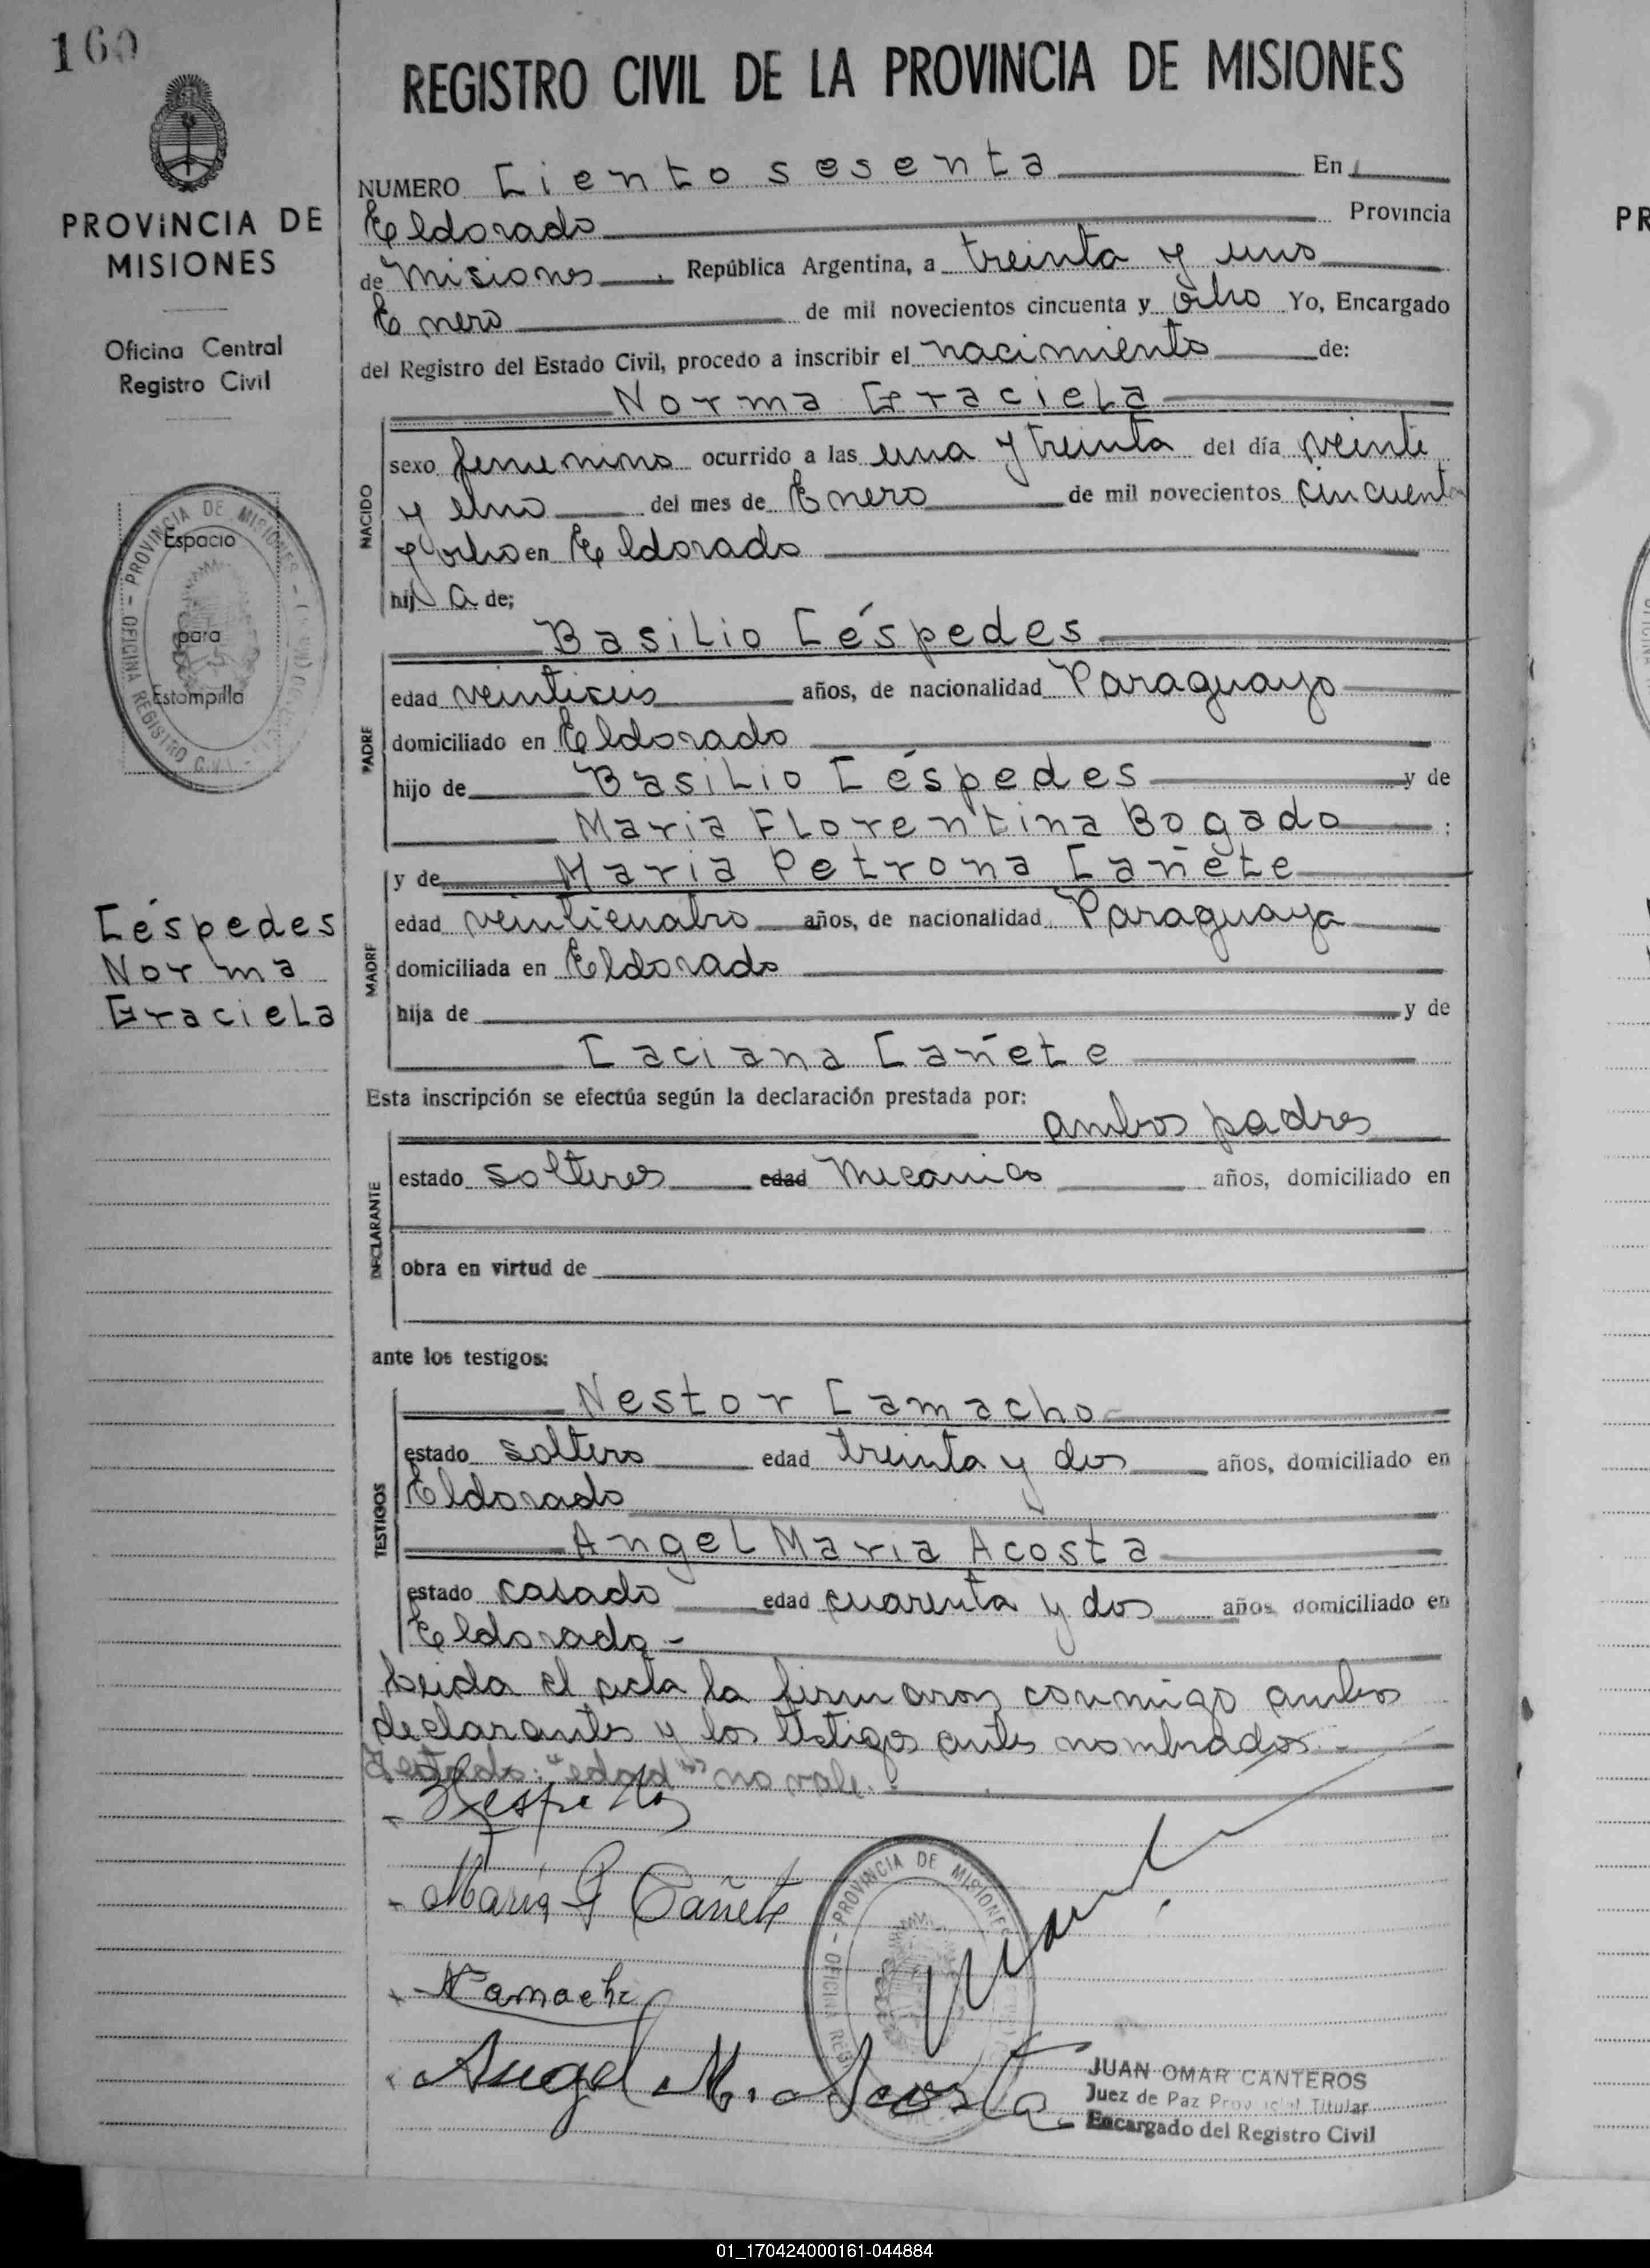 160
PROVINCIA DE
MISIONES
Oficina Central
Registro Civil
PROVINCIA DE MISIONES
OFICINA REGISTRO CIVIL
Espacio
para
Estampilla
Céspedes
Norma
Graciela
REGISTRO CIVIL DE LA PROVINCIA DE MISIONES
NUMERO Ciento sesenta En
Eldorado Provincia
de Misiones, República Argentina, a treinta y uno
Enero de mil novecientos cincuenta y ocho Yo, Encargado
del Registro del Estado Civil, procedo a inscribir el nacimiento de:
Norma Graciela
NACIDO
sexo femenino ocurrido a las una y treinta del día veinte
y uno del mes de Enero de mil novecientos cincuenta
y ocho en Eldorado
hij a de;
Basilio Céspedes
PADRE
edad veintiseis años, de nacionalidad Paraguayo
domiciliado en Eldorado
hijo de Basilio Céspedes y de
Maria Florentina Bogado ;
MADRE
y de Maria Petrona Cañete
edad veinticuatro años, de nacionalidad Paraguaya
domiciliada en Eldorado
hija de y de
Caciana Cañete
Esta inscripción se efectúa según la declaración prestada por:
ambos padres
DECLARANTE
estado solteros edad Mecanico años, domiciliado en
obra en virtud de
ante los testigos:
Nestor Camacho
TESTIGOS
estado soltero edad treinta y dos años, domiciliado en
Eldorado
Angel Maria Acosta
estado casado edad cuarenta y dos años, domiciliado en
Eldorado.-
Leida el acta la firmaron conmigo ambos
declarantes y los testigos antes nombrados.-
Testado: "edad" no vale.
Maria P Cañete
N Camacho
Angel M. Acosta
PROVINCIA DE MISIONES
OFICINA REG
JUAN OMAR CANTEROS
Juez de Paz Provincial Titular
Encargado del Registro Civil
PR
01_170424000161-044884